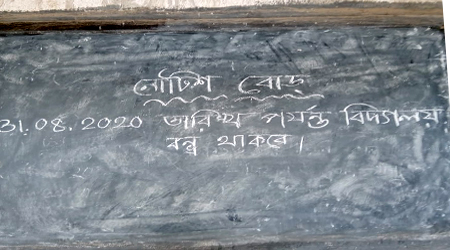 নোটিশ বোর্ড
31.08.2020 তারিখ পর্যন্ত বিদ্যালয়
বন্ধ থাকবে।